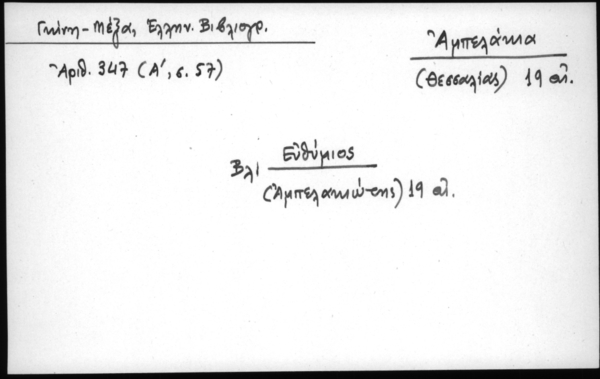 Γκίνη-Μέξα, Ἑλλην. Βιβλιογρ.
Ἀριθ. 347 (Α', σ. 57)
Ἀμπελάκια
(Θεσσαλίας) 19 αἰ.
Βλ. Εὐθύμιος
(Ἀμπελακιώτης) 19 αἰ.